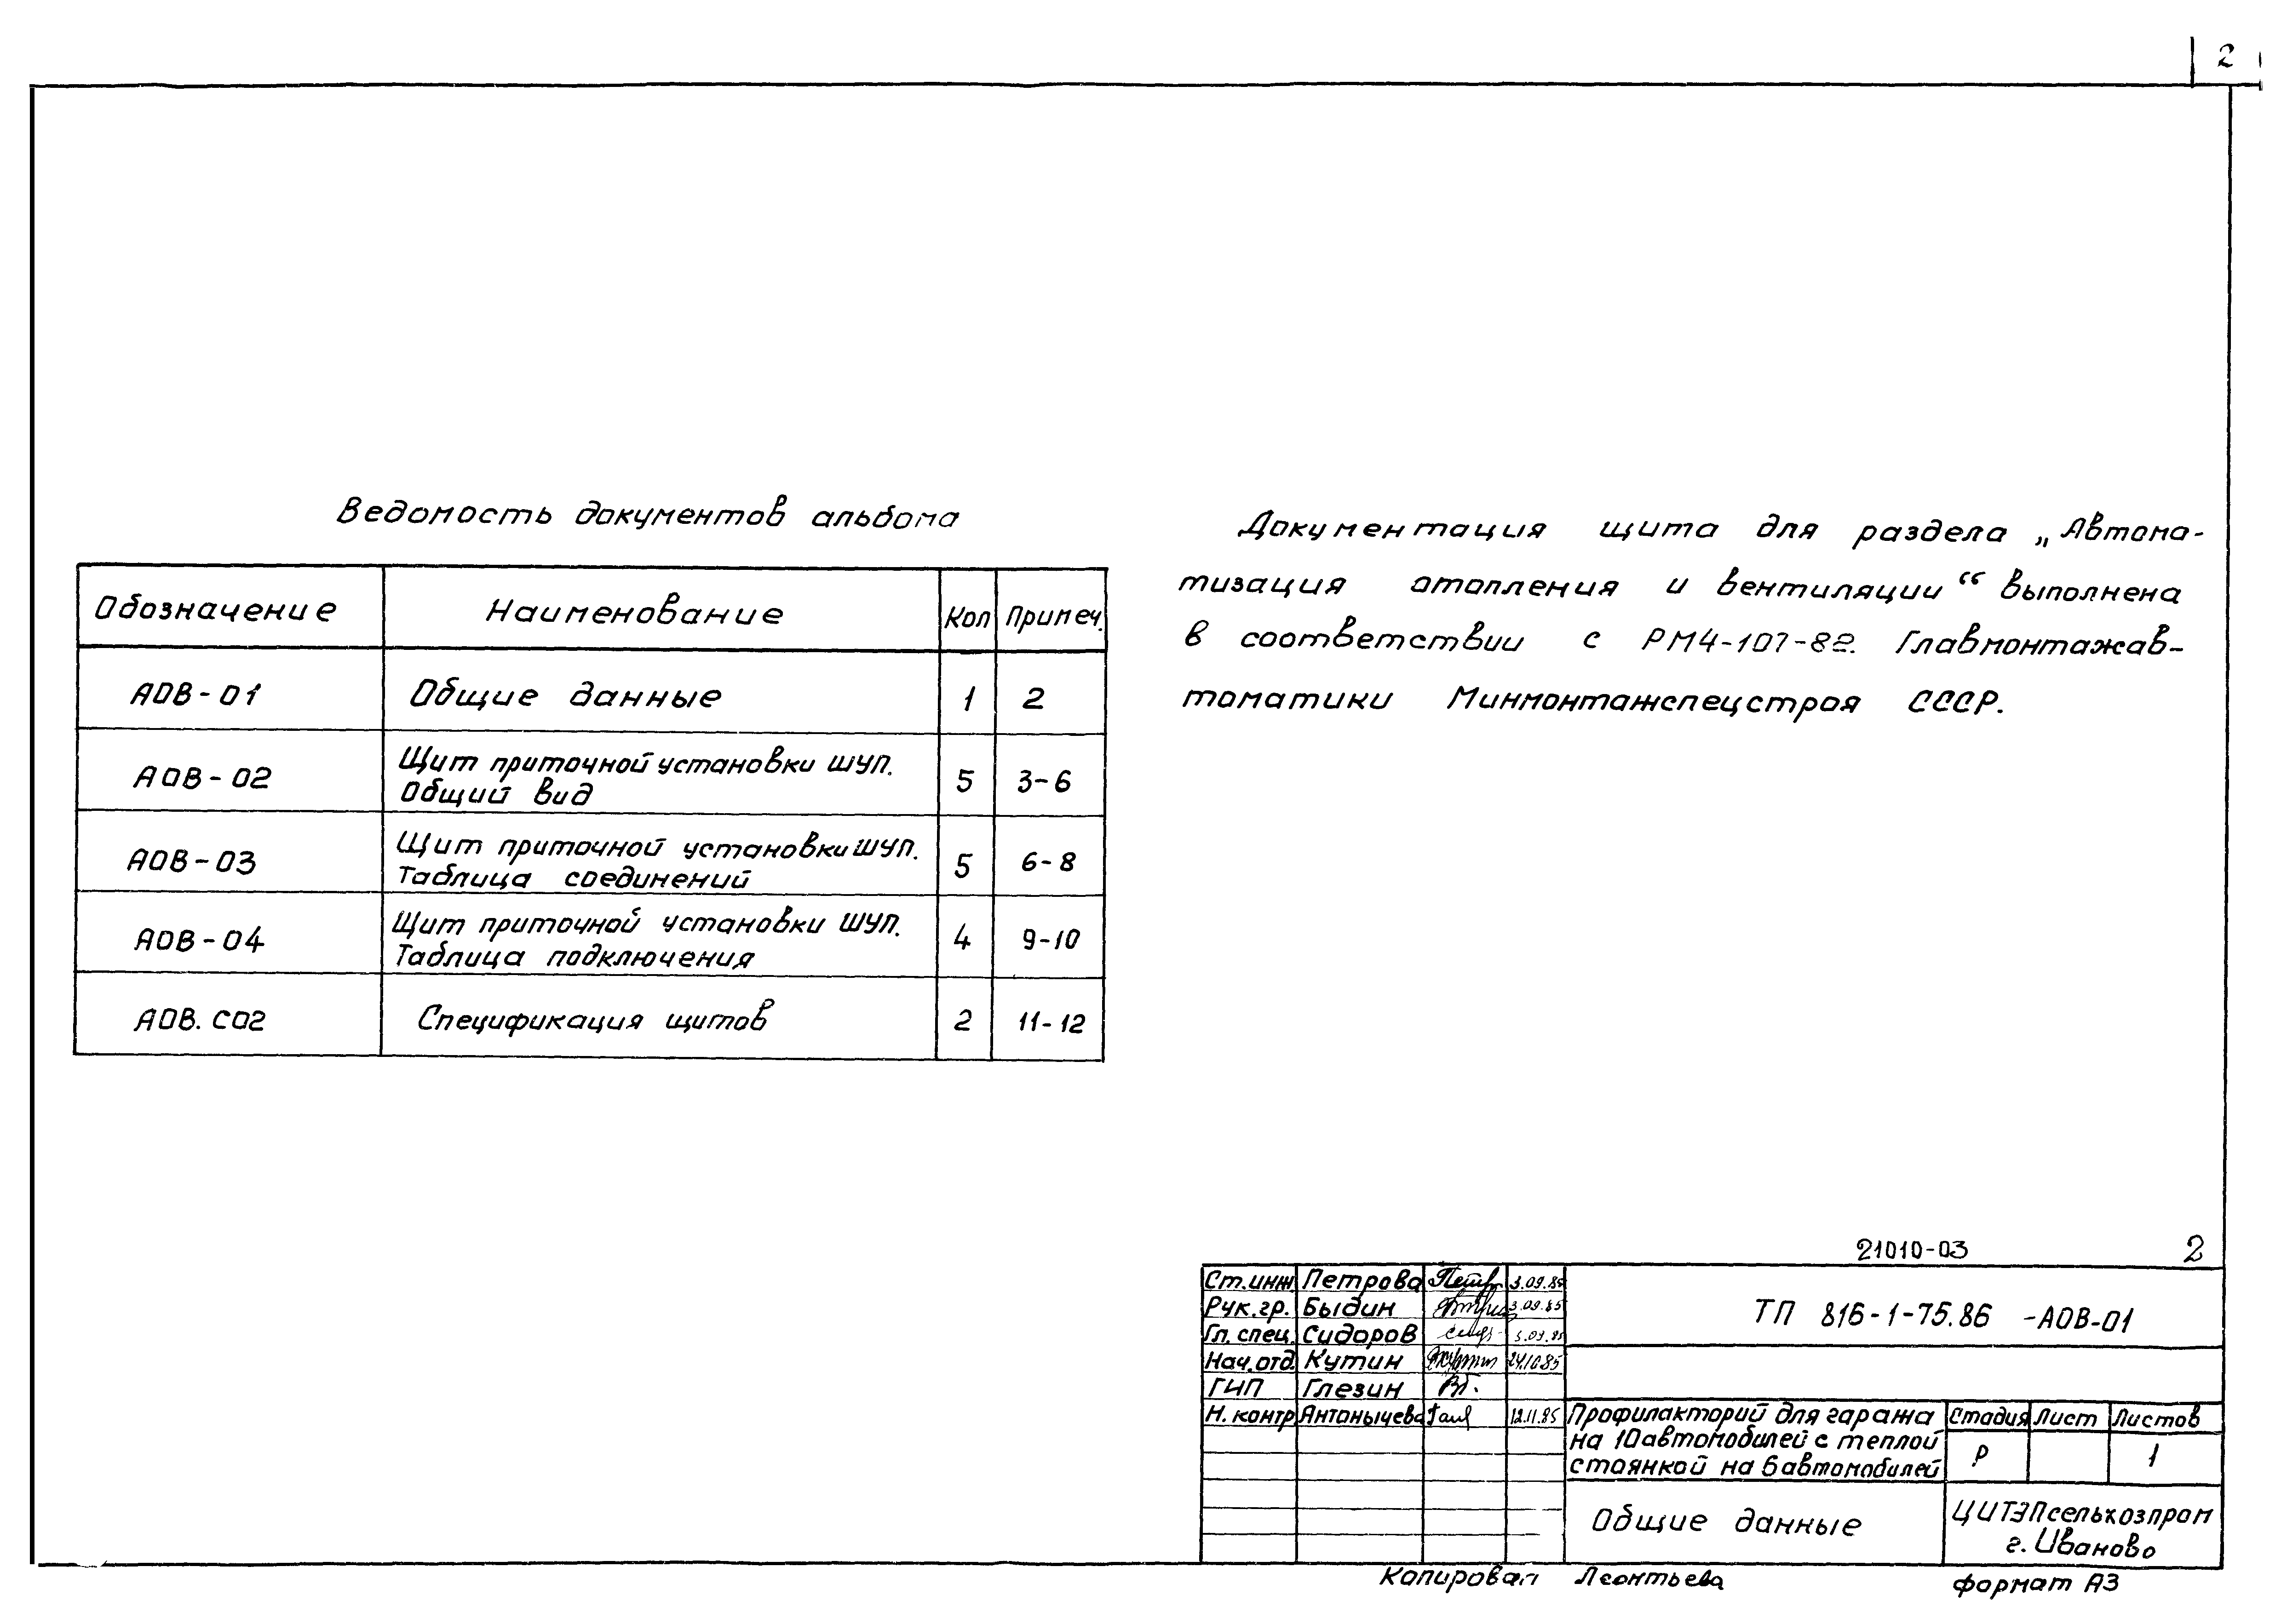 2
Ведомость документов альбома
Обозначение Наименование Кол Примеч.
АОВ-01 Общие данные 1 2
АОВ-02 Щит приточной установки ШУП. Общий вид 5 3-6
АОВ-03 Щит приточной установки ШУП. Таблица соединений 5 6-8
АОВ-04 Щит приточной установки ШУП. Таблица подключения 4 9-10
АОВ.С02 Спецификация щитов 2 11-12
Документация щита для раздела „Автома-
тизация отопления и вентиляции“ выполнена
в соответствии с РМ4-107-82. Главмонтажав-
томатики Минмонтажспецстроя СССР.
21010-03 2
Ст.инж. Петрова 3.09.85
Рук.гр. Быдин 3.09.85
Гл.спец. Сидоров 3.09.85
Нач.отд. Кутин 24.10.85
ГИП Глезин
Н.контр Антонычева 12.11.85
ТП 816-1-75.86 -АОВ-01
Профилакторий для гаража
на 10 автомобилей с теплой
стоянкой на 6 автомобилей
Стадия Лист Листов
Р 1
Общие данные
ЦИТЭПсельхозпром
г. Иваново
Копировал Леонтьева формат А3